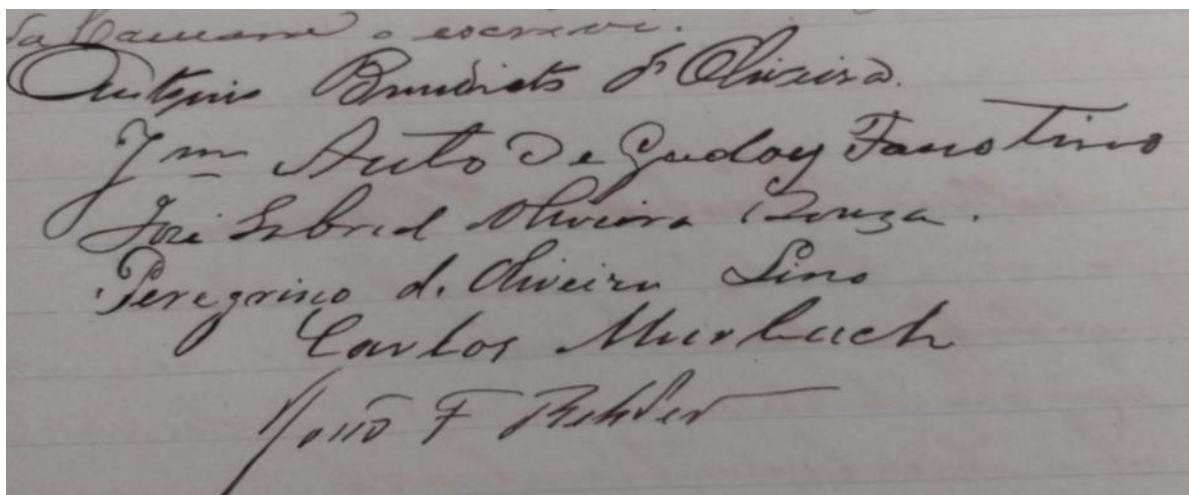 da Camara o escrevi.
Antonio Benedicto d' Oliveira.
Jm Anto De Godoy Faustino
José Gabriel Oliveira Souza.
Peregrino d. Oliveira Lino
Carlos Murbach
João F Rehder